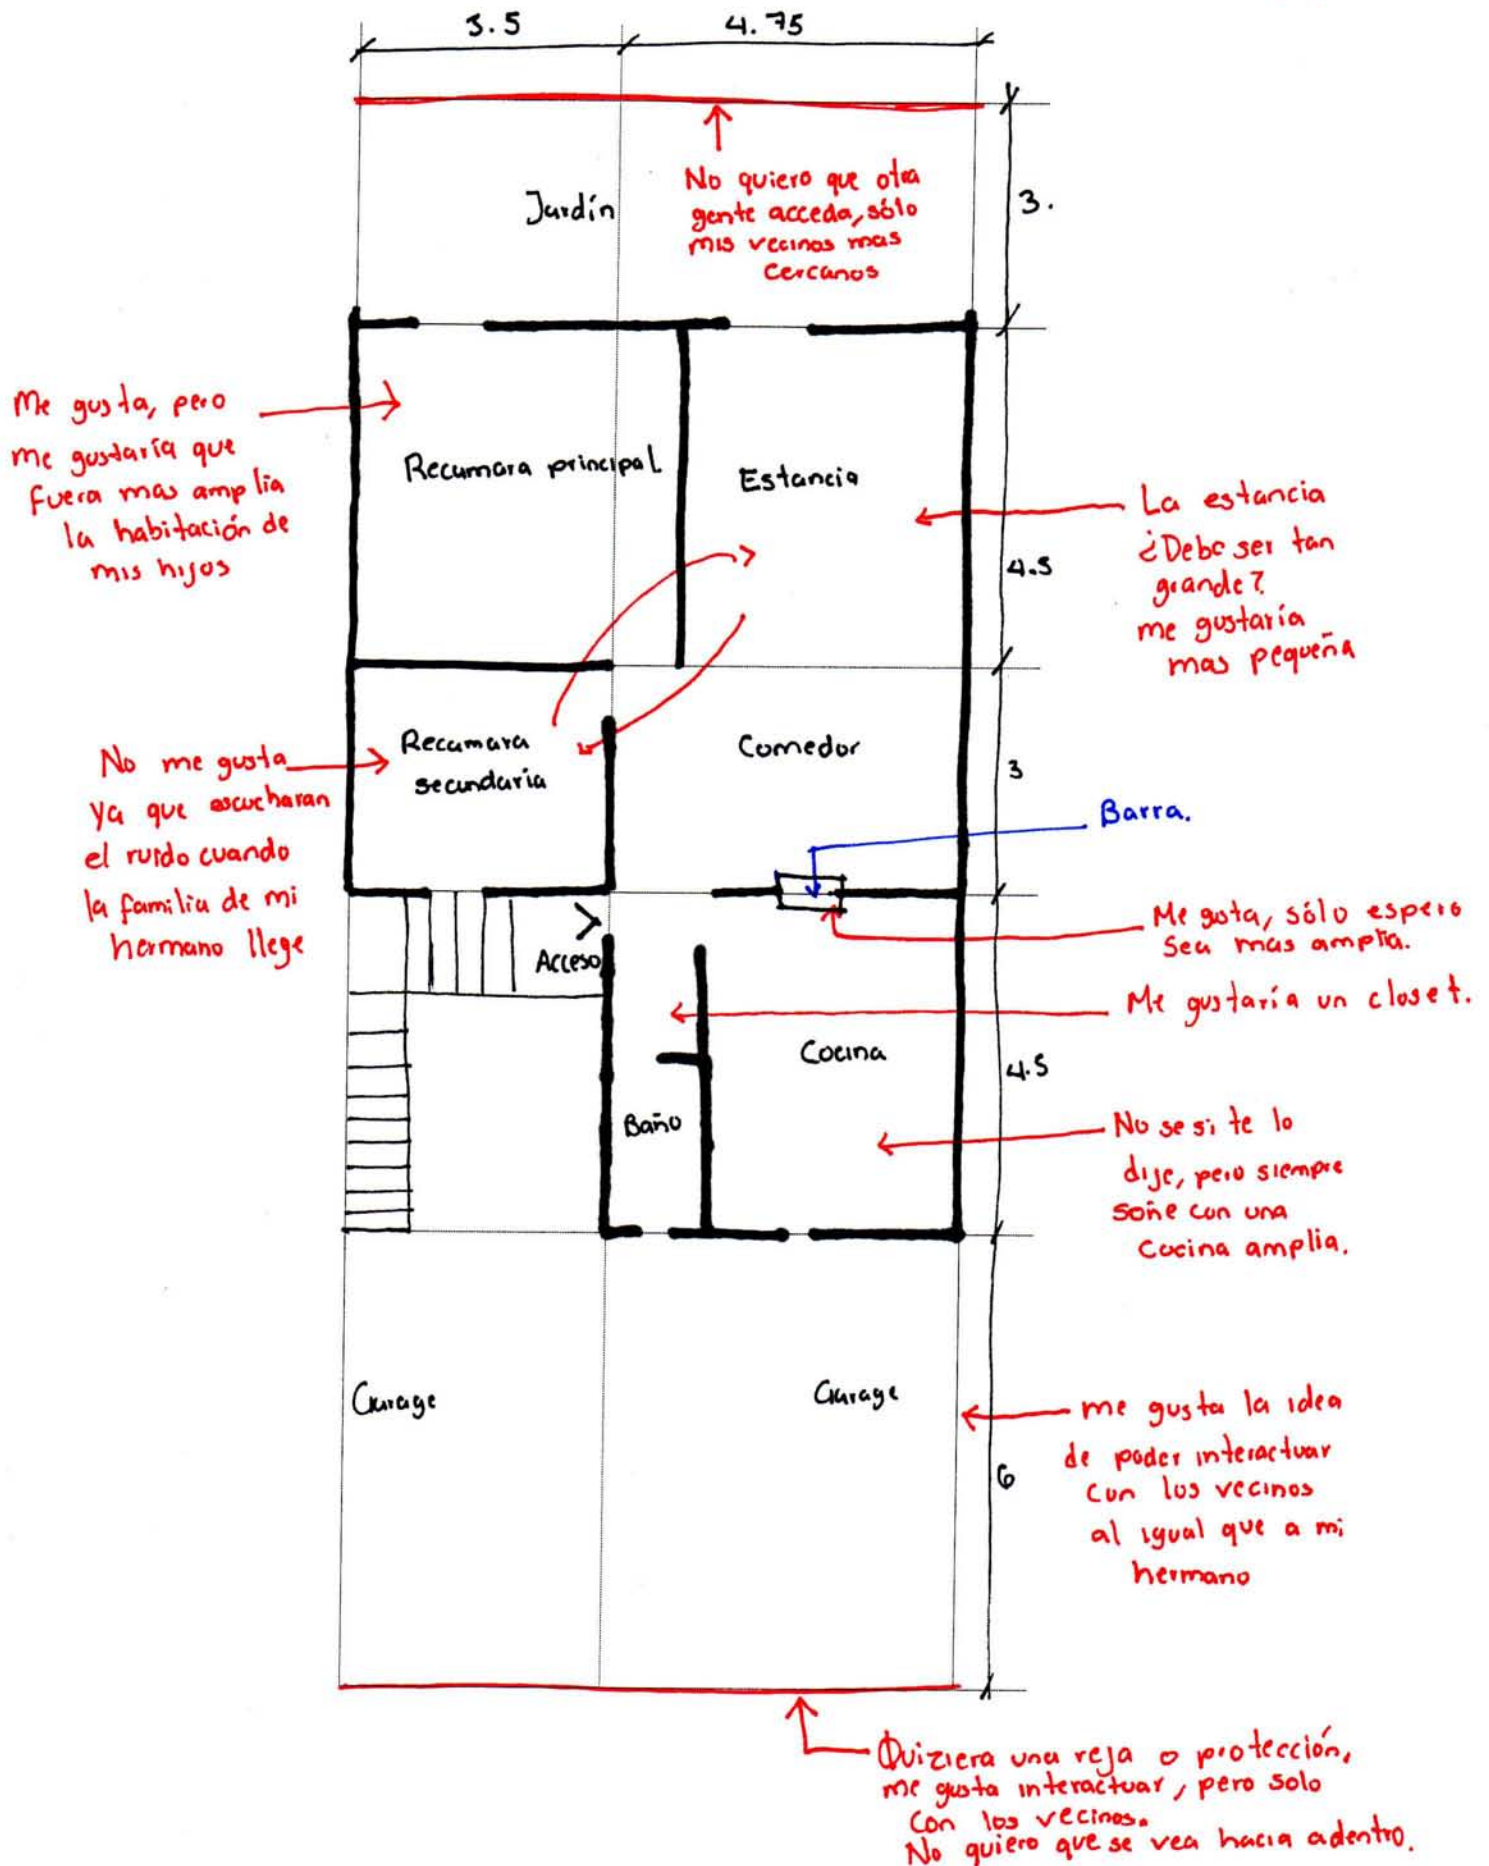 3.5
4.75
No quiero que otra
gente acceda, sólo
mis vecinos mas
cercanos
Jardín
3.
Me gusta, pero
me gustaría que
fuera mas amplia
la habitación de
mis hijos
Recamara principal
Estancia
La estancia
¿Debe ser tan
grande?
me gustaría
mas pequeña
4.5
No me gusta
ya que escucharan
el ruido cuando
la familia de mi
hermano llege
Recamara
secundaria
Comedor
3
Barra.
Me gusta, sólo espero
sea mas amplia.
Acceso
Me gustaría un closet.
Cocina
4.5
Baño
No se si te lo
dije, pero siempre
soñe con una
cocina amplia.
Garage
Garage
me gusta la idea
de poder interactuar
con los vecinos
al igual que a mi
hermano
6
Quiziera una reja o protección,
me gusta interactuar, pero solo
con los vecinos.
No quiero que se vea hacia adentro.